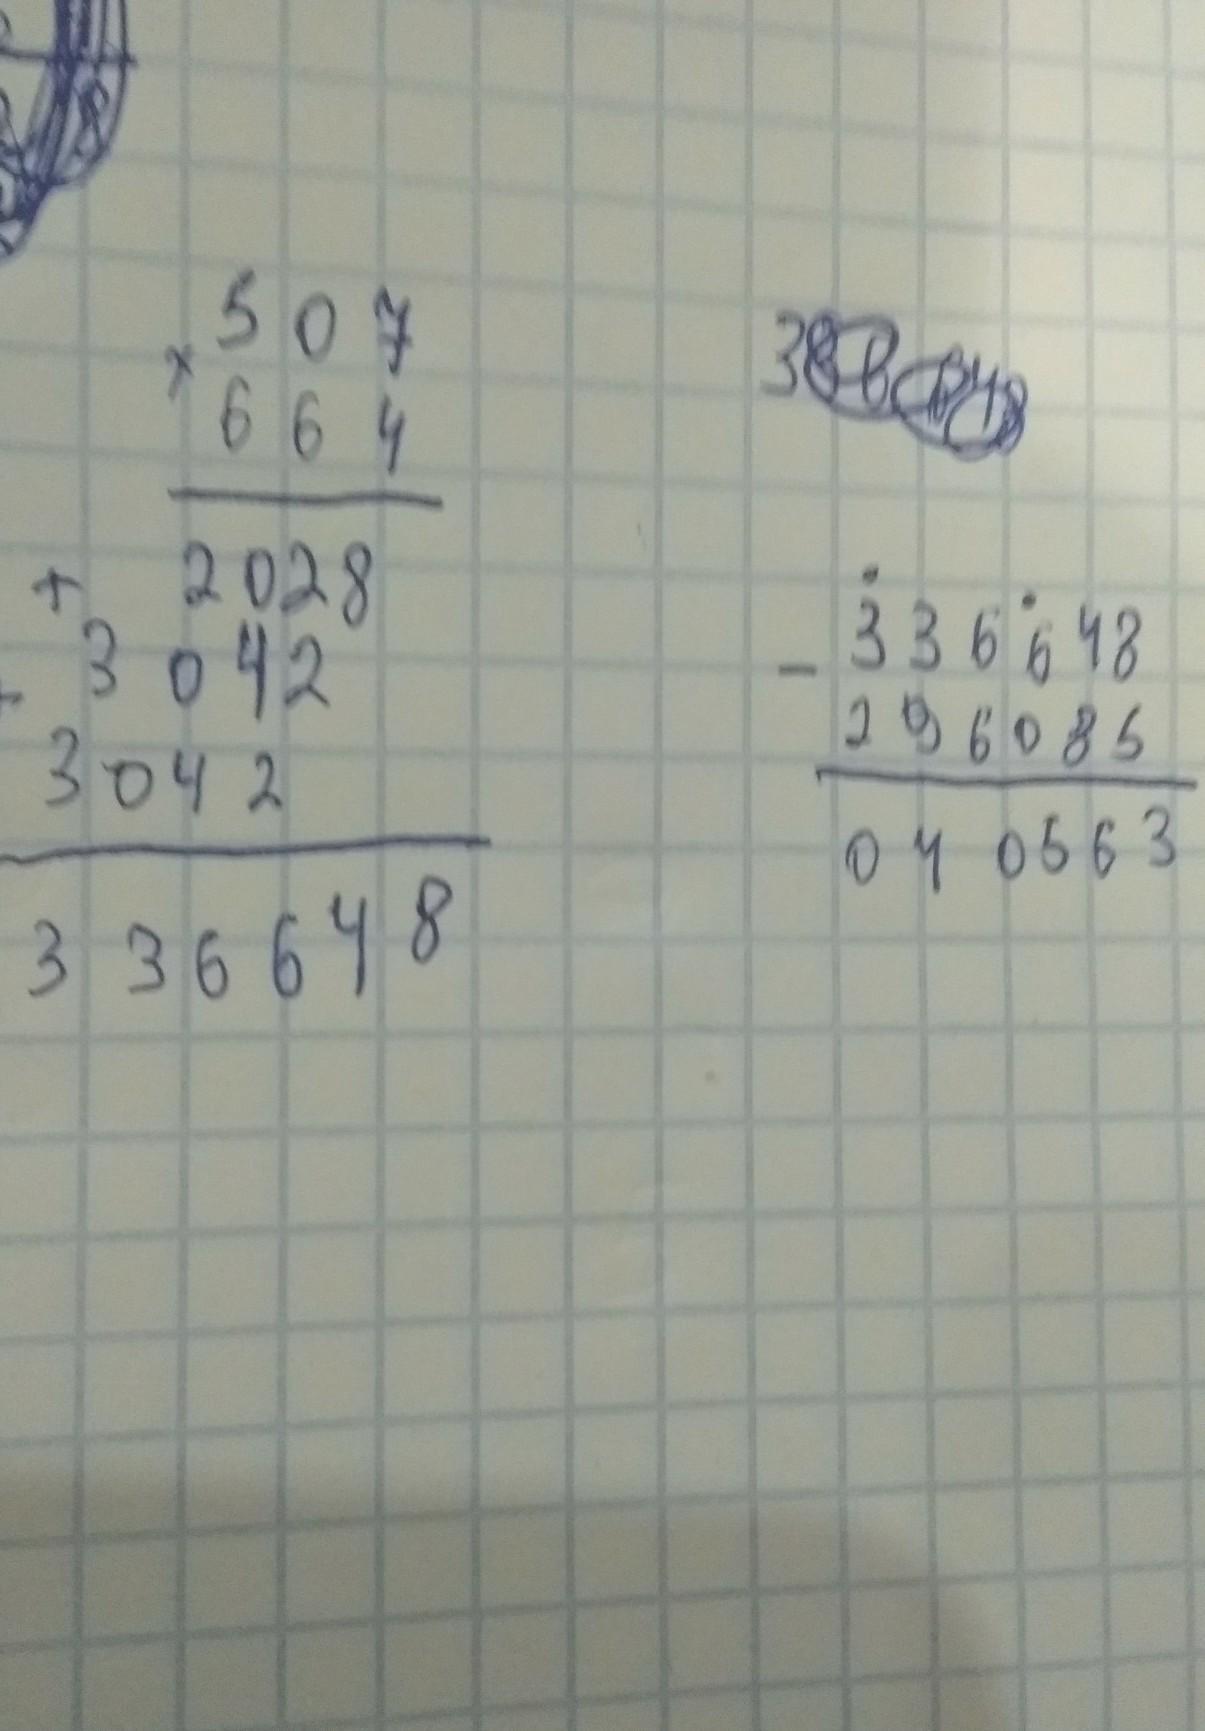 507
× 664
2028
+ 3042
+ 3042
336648
336648
- 296085
040563